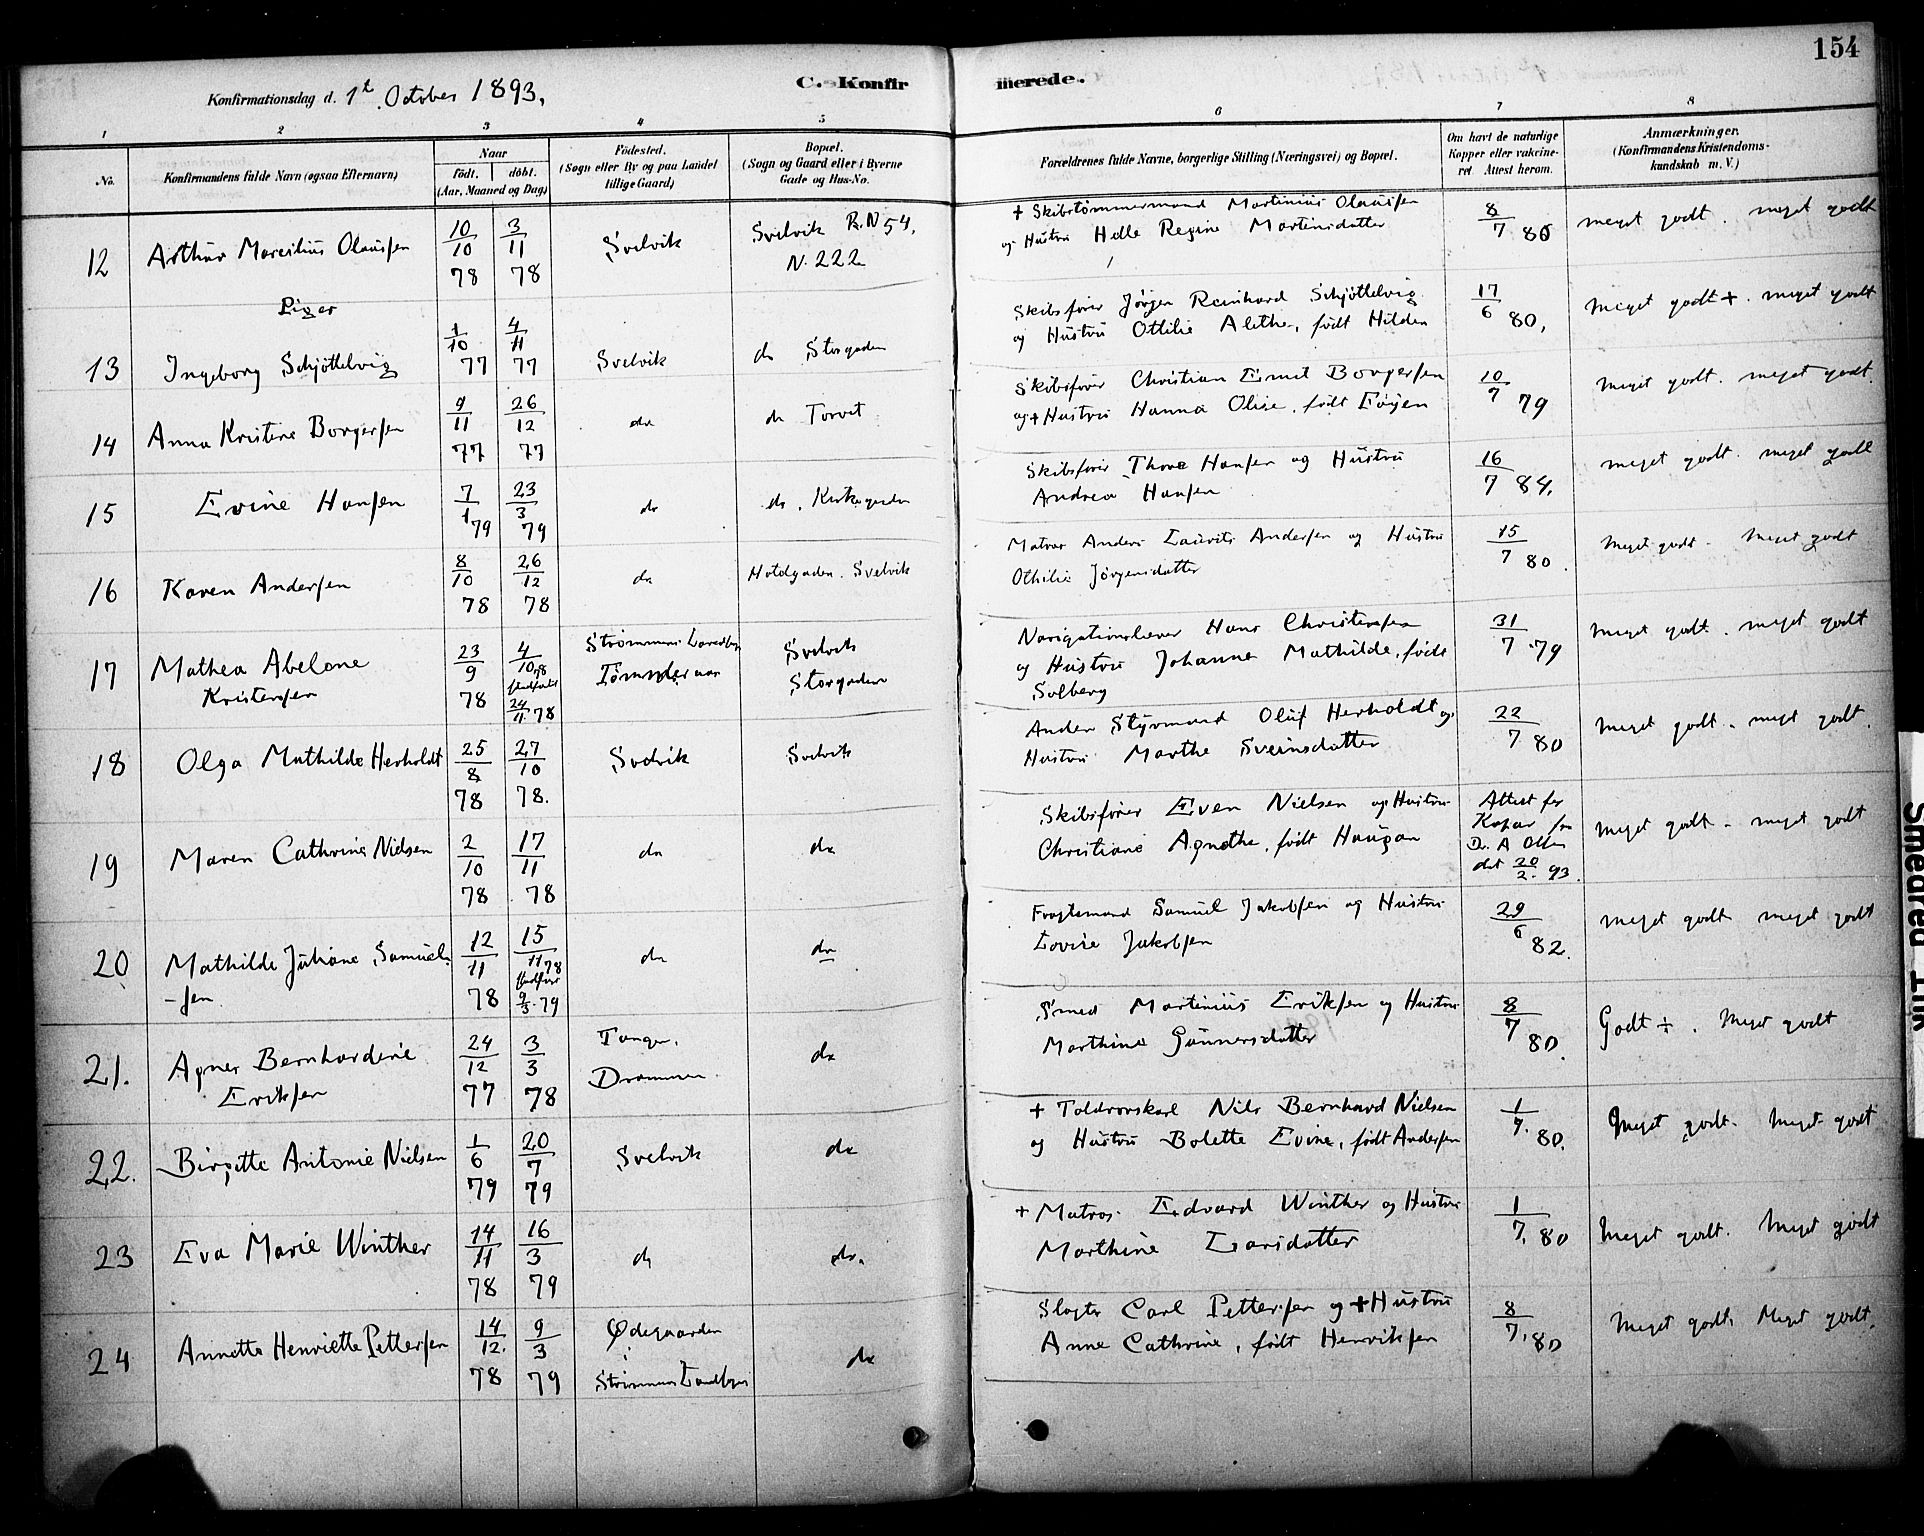 154
Konfirmationsdag d. 1t October 1893.
C. Konfirmerede.
1 2 3 4 5 6 7 8
No.
Konfirmandens fulde Navn (ogsaa Efternavn)
Naar
födt. döbt.
(Aar, Maaned og Dag)
Födested.
(Sogn eller By og paa Landet
tillige Gaard)
Bopæl.
(Sogn og Gaard eller i Byerne
Gade og Hus-No.
Forældrenes fulde Navne, borgerlige Stilling (Næringsvei) og Bopæl.
Om havt de naturlige
Kopper eller vakcine-
ret Attest herom.
Anmærkninger.
(Konfirmandens Kristendoms-
kundskab m. V.)
12 Arthur Marcilius Olaussen 10/10 78 3/11 78 Svelvik Svelvik B.N 54,
N. 222
+ Skibstømmermand Martinius Olaussen
og Hustru Helle Regine Martinsdatter
8/7 86 meget godt. meget godt
Piger
13 Ingeborg Schjøttelvig 1/10 77 4/11 77 Svelvik do Storgaden
Skibsfører Jörgen Reinhard Schjöttelvig
og Hustru Ottilie Alethe, født Hilden
17/6 80, Meget godt +. meget godt
14 Anna Kristine Borgersen 9/11 77 26/12 77 do do Torvet
Skibsfører Christian Emil Borgersen
og + Hustru Hanna Olise, født
10/7 79 Meget godt. meget godt.
15 Evine Hansen 7/1 79 23/3 79 do do. Kirkegaden
Skibsfører Thore Hansen og Hustru
Andrea Hansen
16/7 84, meget godt. meget godt
16 Karen Andersen 8/10 78 26/12 78 do Svelvik
Matros Anders Laurits Andersen og Hustru
Othilie Jørgensdatter
15/7 80. Meget godt. Meget godt
17 Mathea Abelone
Kristensen
23/9 78 4/10 78
stadfæstet
24/11 78
Strømmens Landsogn
Svelvik
Storgaden
Navigationslærer Hans Christensen
og Hustru Johanne Mathilde, født
Solberg
31/7 79 Meget godt. meget godt
18 Olga Mathilde Herholdt 25/8 78 27/10 78. Svelvik Svelvik
Anden Styrmand Oluf Herholdt og
Hustru Marthe Sveinsdatter
22/7 80 Meget godt. meget godt.
19 Maren Cathrine Nielsen 2/10 78 17/11 78 do do
Skibsfører Even Nielsen og Hustru
Christiane Agnethe, født Haugan
Attest for
Kopar fra
Dr. A Olsen
dat 20/2. 93.
Meget godt. meget godt
20 Mathilde Juliane Samuel-
-sen
12/11 78 15/11 78
stadfæst
9/3. 79
do do
Fragtemand Samuel Jakobsen og Hustru
Lovise Jakobsen
29/6 82. Meget godt meget godt
21. Agnes Bernhardine
Eriksen
24/12 77 3/3 78
Tangen,
Drammen.
do
Smed Martinius Eriksen og Hustru
Marthine Gunnersdatter
8/7 80. Godt ÷. Meget godt
22. Birgitte Antonie Nielsen 1/6 79 20/7 79 Svelvik do
+ Toldrorskarl Nils Bernhard Nielsen
og Hustru Bolette Evine, født Andersen
1/7. 80. Meget godt. Meget godt
23 Eva Marie Winther 14/11 78 16/3 79 do do.
+ Matros. Edvard Winther og Hustru
Marthine Larsdatter
1/7. 80 Meget godt. Meget godt
24 Annette Henriette Pettersen 14/12. 78 9/3 79
Ødegaarden
i
Strømmens Landsogn
do
Slagter Carl Pettersen og + Hustru
Anne Cathrine, født Henriksen
8/7. 80 Meget godt. Meget godt.
Smedred Ink